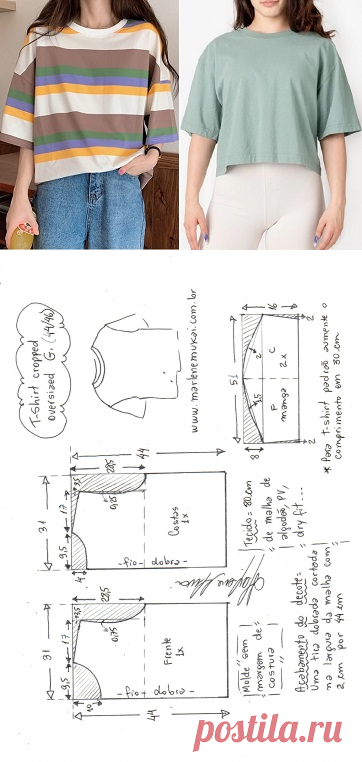 T-Shirt cropped
oversized G. (44/46)
www.marlenemukai.com.br
16
2
51
2
C
manga
2x
F
1,5
8
2
* Para t-shirt padrão aumente o
comprimento em 30 cm
44
22,5
3,5
0,25
31
17
9,5
4
Costas
1x
- fio - dobra -
Tecido = 80 cm
de malha de
algodão, PV,
dry fit ...
22,5
3,5
0,75
31
17
9,5
10
Frente
1x
- fio - dobra -
44
Molde sem
margem de
costura
Acabamento do decote =
Uma tira dobrada cortada
na largura da malha com =
2 cm por 44 cm
postila.ru